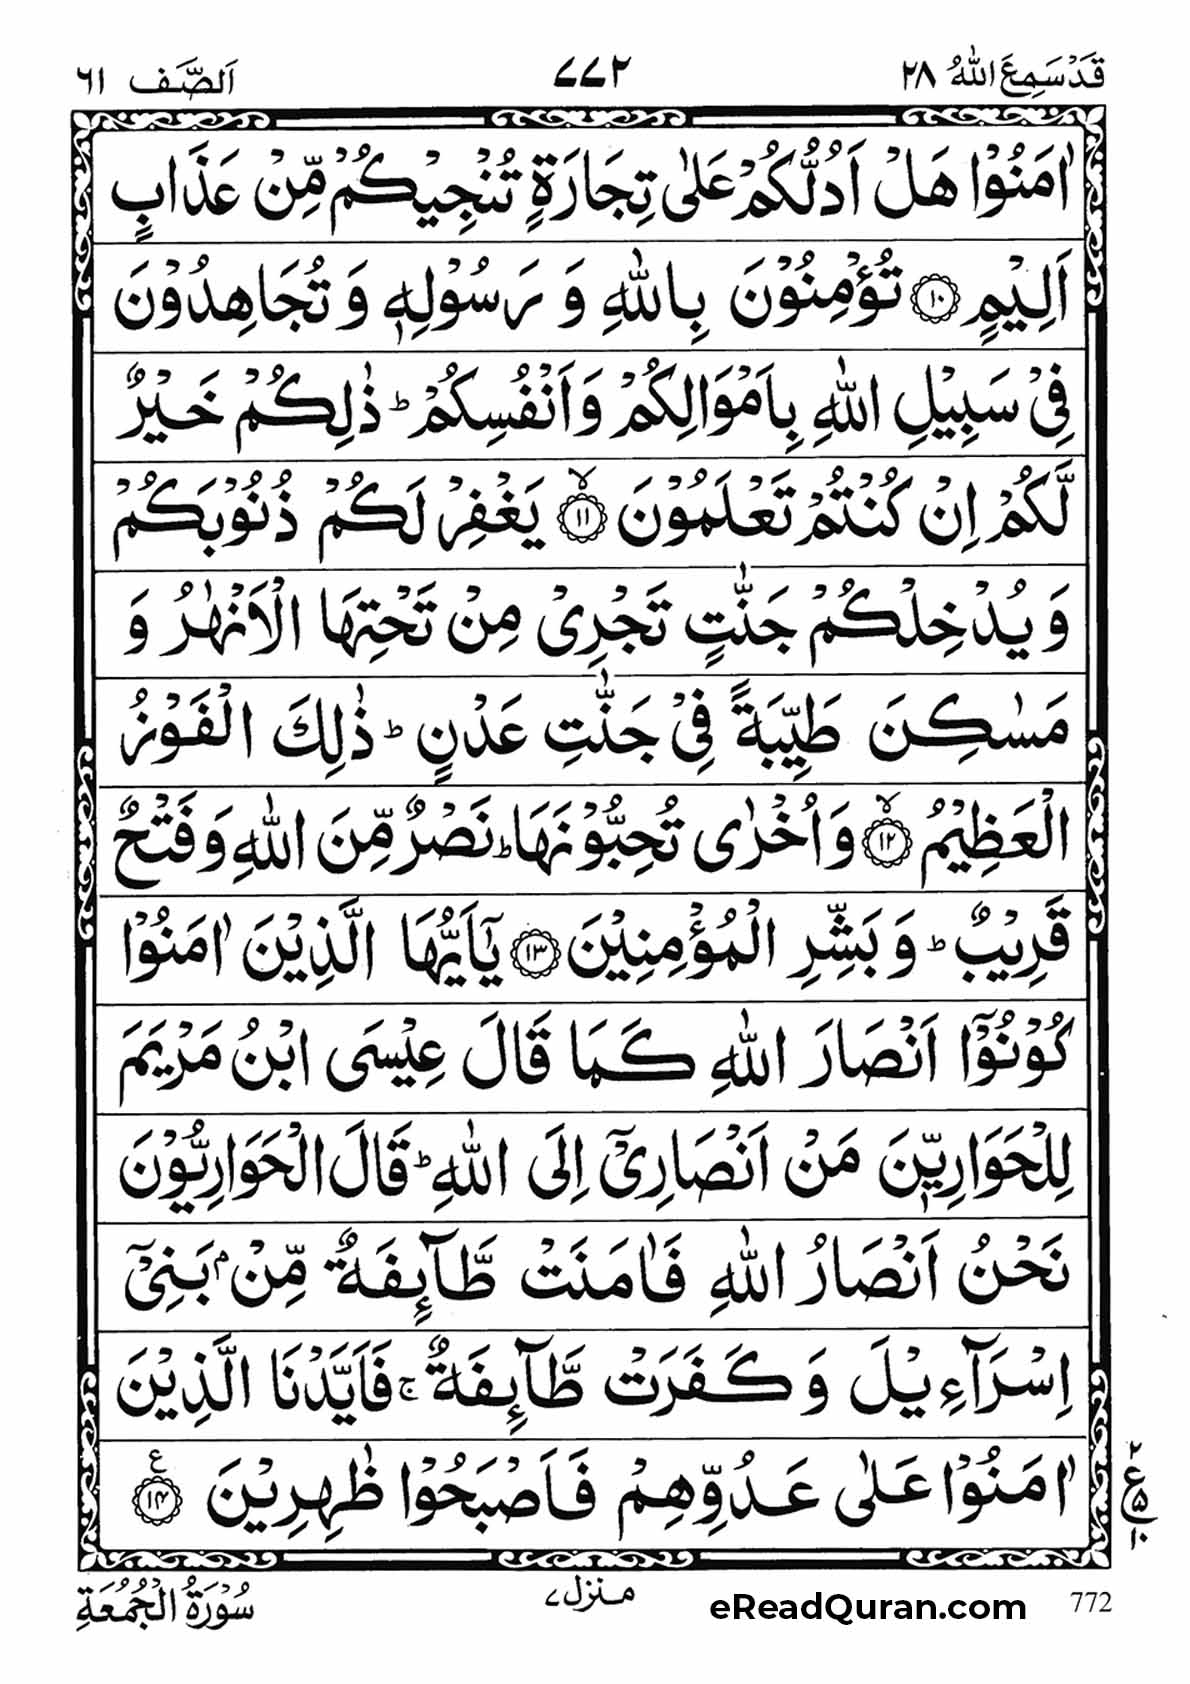 قَدْ سَمِعَ اللّٰهُ ٢٨ ٧٧٢ اَلصَّف ٦١
اٰمَنُوْا هَلْ اَدُلُّكُمْ عَلٰى تِجَارَةٍ تُنْجِيْكُمْ مِّنْ عَذَابٍ
اَلِيْمٍ ﴿١٠﴾ تُؤْمِنُوْنَ بِاللّٰهِ وَ رَسُوْلِهٖ وَ تُجَاهِدُوْنَ
فِيْ سَبِيْلِ اللّٰهِ بِاَمْوَالِكُمْ وَاَنْفُسِكُمْ ؕ ذٰلِكُمْ خَيْرٌ
لَّكُمْ اِنْ كُنْتُمْ تَعْلَمُوْنَ ﴿١١﴾ۙ يَغْفِرْ لَكُمْ ذُنُوْبَكُمْ
وَ يُدْخِلْكُمْ جَنّٰتٍ تَجْرِيْ مِنْ تَحْتِهَا الْاَنْهٰرُ وَ
مَسٰكِنَ طَيِّبَةً فِيْ جَنّٰتِ عَدْنٍ ؕ ذٰلِكَ الْفَوْزُ
الْعَظِيْمُ ﴿١٢﴾ۙ وَاُخْرٰى تُحِبُّوْنَهَا ؕ نَصْرٌ مِّنَ اللّٰهِ وَفَتْحٌ
قَرِيْبٌ ؕ وَ بَشِّرِ الْمُؤْمِنِيْنَ ﴿١٣﴾ يٰۤاَيُّهَا الَّذِيْنَ اٰمَنُوْا
كُوْنُوْۤا اَنْصَارَ اللّٰهِ كَمَا قَالَ عِيْسَى ابْنُ مَرْيَمَ
لِلْحَوَارِيّٖنَ مَنْ اَنْصَارِيْۤ اِلَى اللّٰهِ ؕ قَالَ الْحَوَارِيُّوْنَ
نَحْنُ اَنْصَارُ اللّٰهِ فَاٰمَنَتْ طَّآئِفَةٌ مِّنْۢ بَنِيْۤ
اِسْرَآءِيْلَ وَ كَفَرَتْ طَّآئِفَةٌ ۚ فَاَيَّدْنَا الَّذِيْنَ
اٰمَنُوْا عَلٰى عَدُوِّهِمْ فَاَصْبَحُوْا ظٰهِرِيْنَ ﴿١٤﴾ ع
٢
ع
٥
١٠
سُوْرَةُ الْجُمُعَةِ منزل ٧ eReadQuran.com 772